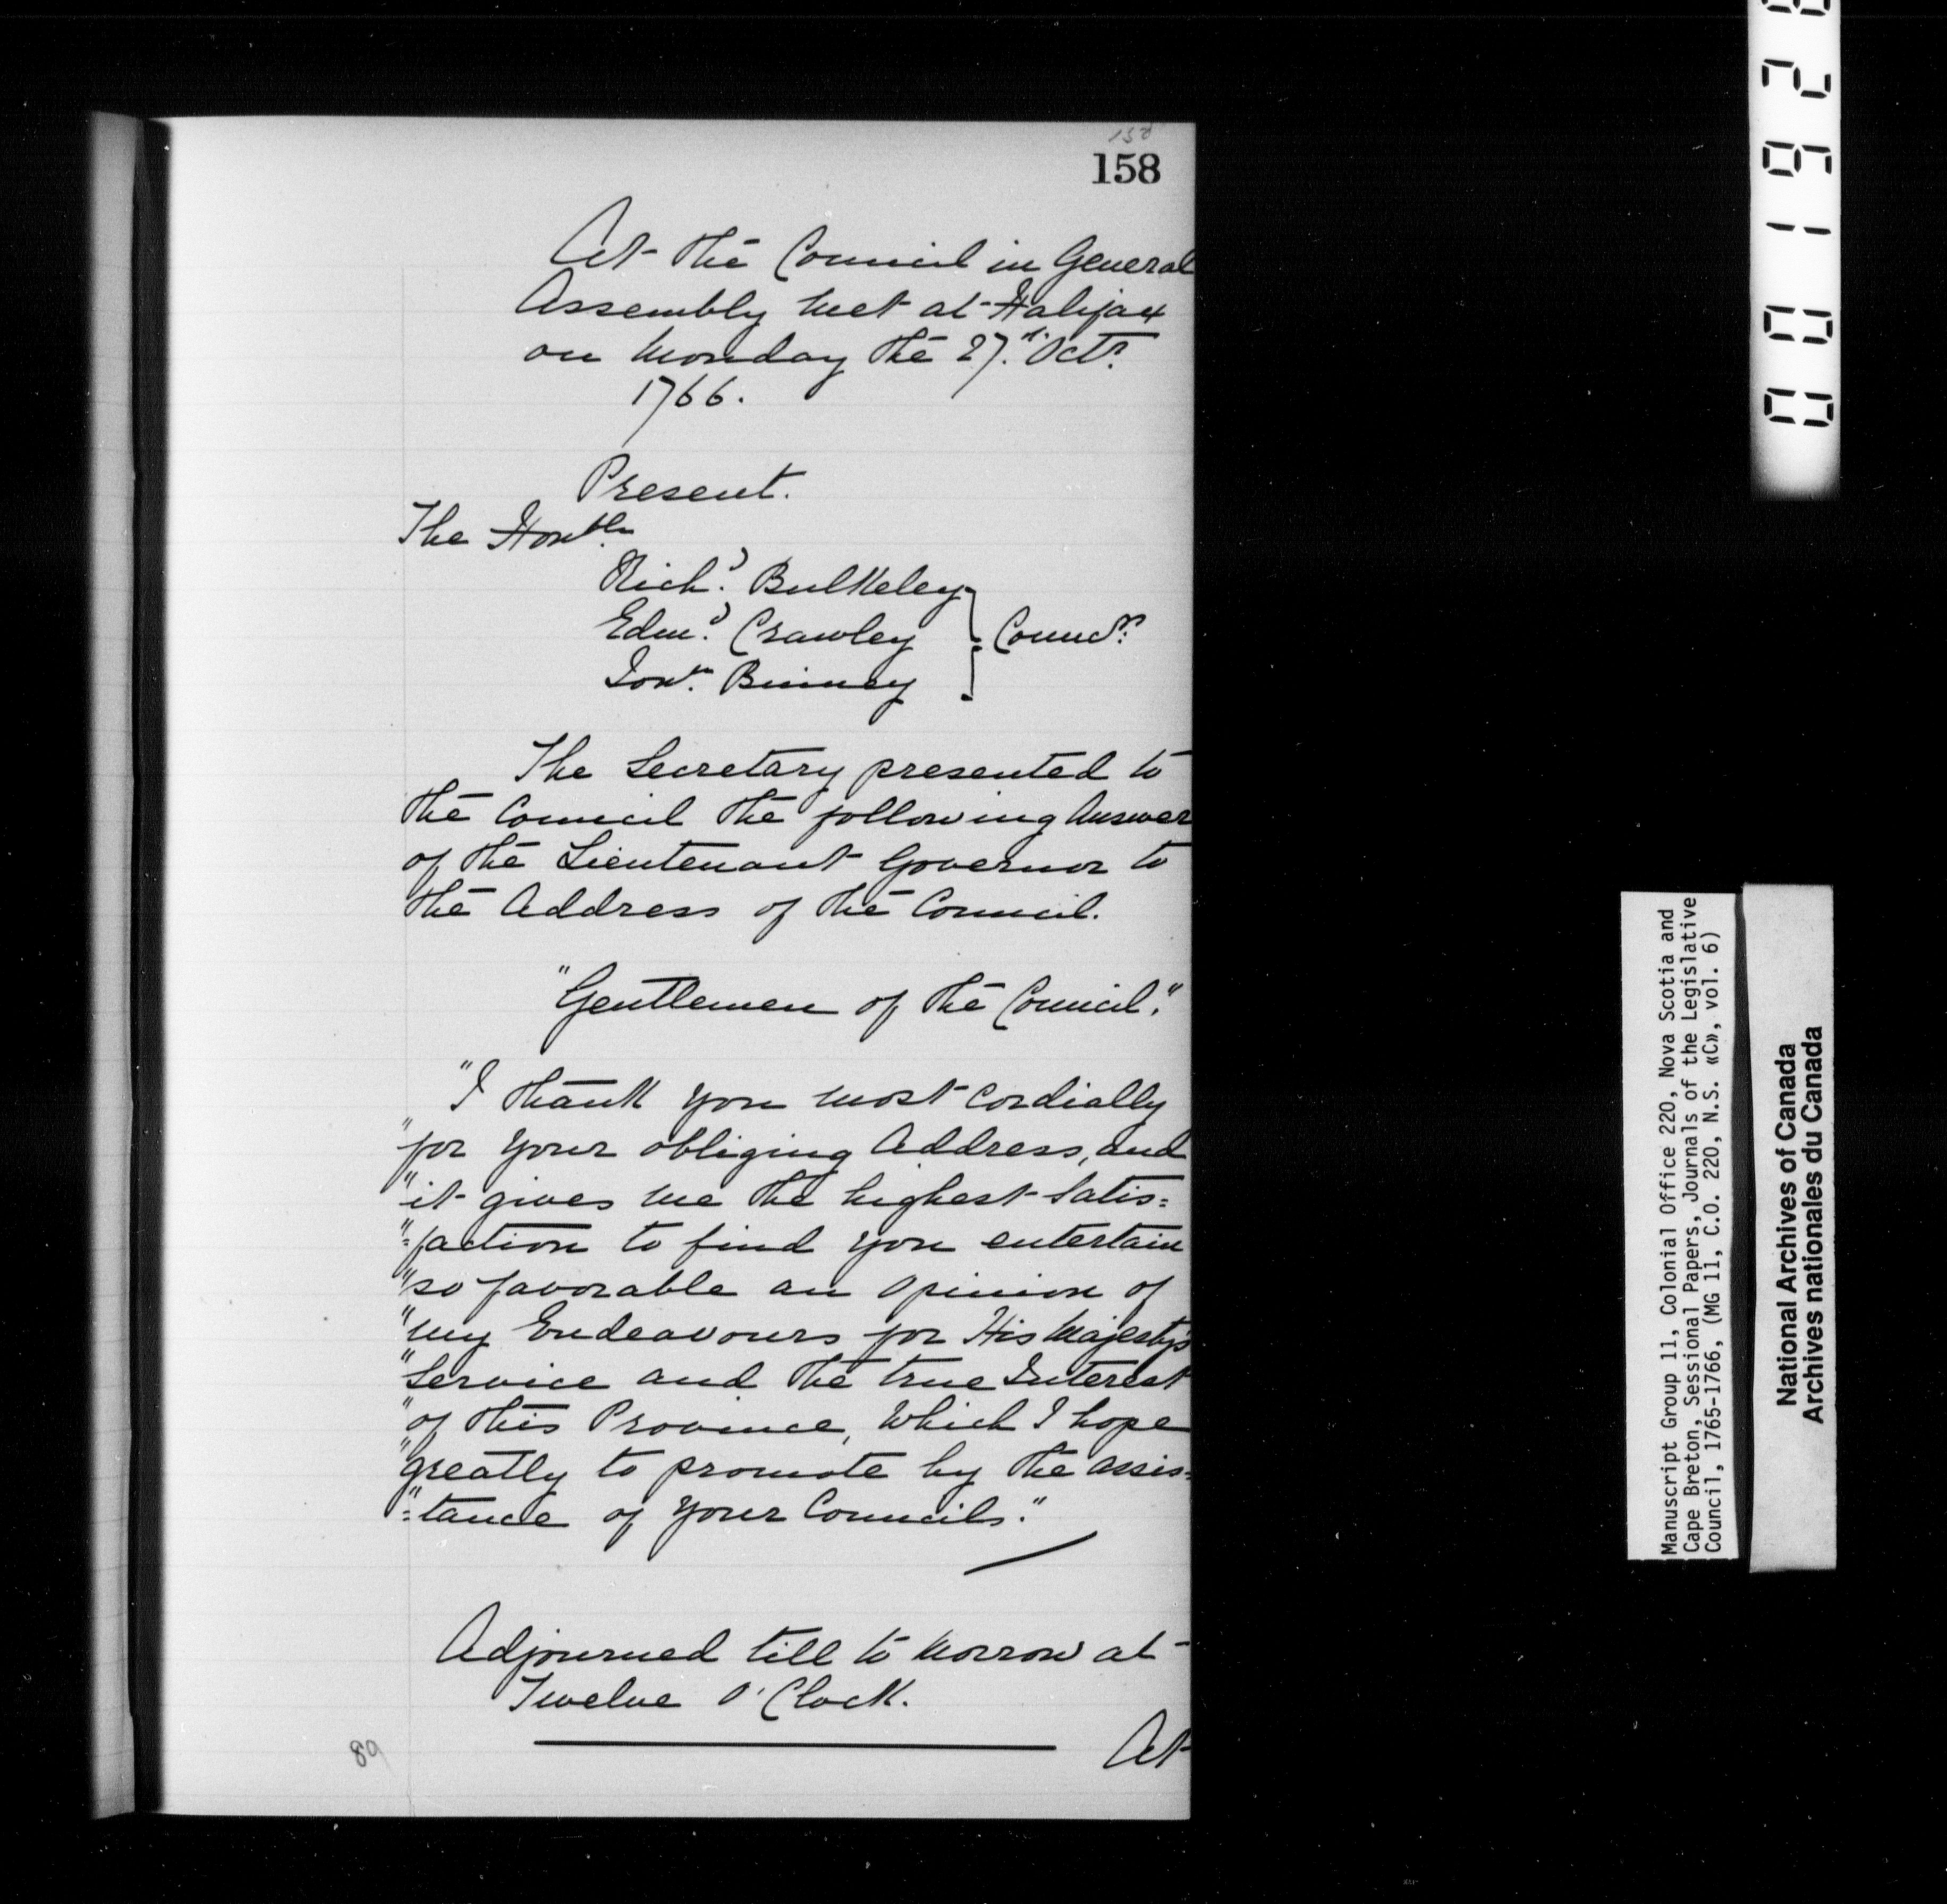 158
158
At the Council in General
Assembly met at Halifax
on Monday the 27.th Octr.
1766.
Present.
The Honble
Richd. Bulkeley
Edmd. Crawley
Jonn. Binney
Councrs.
The Secretary presented to
the Council the following Answer
of the Lieutenant Governor to
the Address of the Council.
"Gentlemen of the Council."
"I thank you most cordially
"for your obliging Address, and
"it gives me the highest Satis=
"=faction to find you entertain
"so favorable an opinion of
"my Endeavours for His Majesty's
"Service and the true Interest
"of this Province, which I hope
"greatly to promote by the assis=
"=tance of your Councils."
Adjourned till to morrow at
Twelve O'Clock.
At
89
Manuscript Group 11, Colonial Office 220, Nova Scotia and
Cape Breton, Sessional Papers, Journals of the Legislative
Council, 1765-1766, (MG 11, C.O. 220, N.S. «C», vol. 6)
National Archives of Canada
Archives nationales du Canada